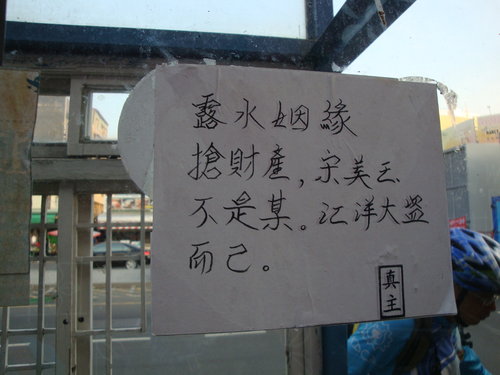 露水姻緣
搶財產,宋美玉
不是某。江洋大盜
而己。
真主